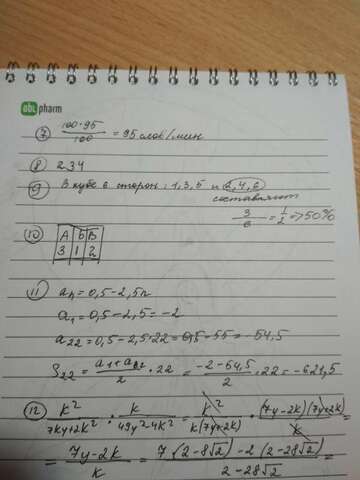 abl pharm
⑦ 100·95/100 = 95 слов/мин
⑧ 234
⑨ В кубе 6 сторон: 1,3,5 и 2,4,6
составляют
3/6 = 1/2 => 50%
⑩ А Б В
3 1 2
⑪ an = 0,5-2,5n
a1 = 0,5-2,5 = -2
a22 = 0,5-2,5·22 = 0,5-55 = -54,5
S22 = (a1+a22)/2 · 22 = (-2-54,5)/2 · 22 = -621,5
⑫ k²/(7ky+2k²) · k/(49y²-4k²) = k²/(k(7y+2k)) · (7y-2k)(7y+2k)/k =
= (7y-2k)/k = (7(2-8√2)-2(2-28√2))/(2-28√2) =